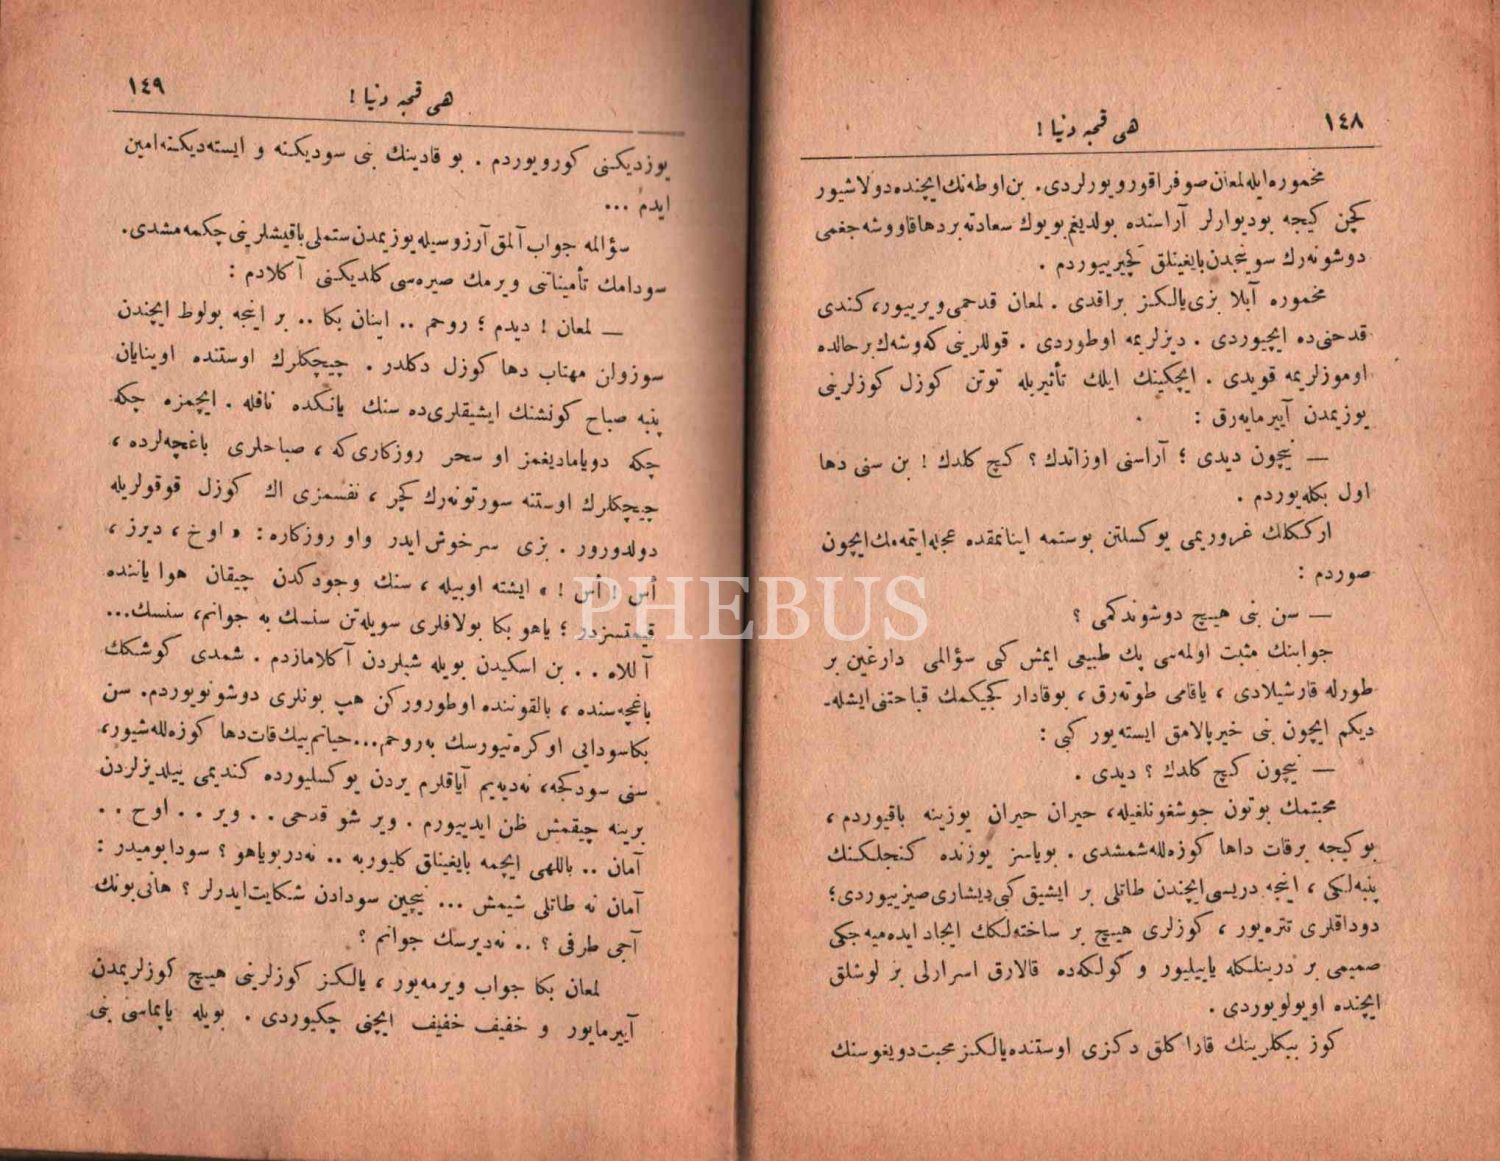 ١٤٨
هی قحبه دنیا !
مخموره ایله لمعان صوفرا قورویورلردی. بن اوطه‌نك ایچنده دولاشیور
كچن كیجه بو دیوارلر آراسنده بولدیغم بویوك سعادته بر دها قاووشه جغمی
دوشونه‌رك سوینجدن بایغینلق كچیرییوردم .
مخموره آبلا بزی یالكز براقدی . لمعان قدحمی ویرییور، كندی
قدحنی ده ایچیوردی . دیزلریمه اوطوردی . قوللرینی كه‌وشه‌ك بر حالده
اوموزلریمه قویدی . ایچكینك ایلك تأثیریله توتن كوزل كوزلرینی
یوزیمدن آییرمایه‌رق :
— نیچون دیدی ؛ آراسنی اوزاتدك ؟ كچ كلدك ! بن سنی دها
اول بكله‌یوردم .
ارككلك غروریمی یوكسلتن بو ستمه اینانمقده عجله ایتمه‌مك ایچون
صوردم :
— سن بنی هیچ دوشوندكمی ؟
جوابنك مثبت اولمه‌سی پك طبیعی ایمش كبی سؤالمی دارغین بر
طورله قارشیلادی ، یاقامی طوته‌رق ، بوقادار كجیكمك قباحتنی ایشله‌-
دیكم ایچون بنی خیرپالامق ایسته‌یور كبی :
— نیچون كچ كلدك ؟ دیدی .
محبتمك بوتون جوشغونلغیله، حیران حیران یوزینه باقیوردم ،
بو كیجه بر قات داها كوزه‌لله‌شمشدی . بویاسز یوزنده كنجلكنك
پنبه‌لكی ، اینجه دریسی ایچندن طاتلی بر ایشیق كبی دیشاری صیزییوردی؛
دوداقلری تتره‌یور ، كوزلری هیچ بر ساخته‌لكك ایجاد ایده‌میه جكی
صمیمی بر درینلكله یاییلیور و كولكه‌ده قالارق اسرارلی بر لوشلق
ایچنده اویولویوردی .
كوز ببكلرینك قارا كلق دكزی اوستنده یالكز محبت دویغوسنك
١٤٩
هی قحبه دنیا !
یوزدیكنی كورویوردم . بو قادینك بنی سودیكنه و ایسته‌دیكنه امین
ایدم ...
سؤالمه جواب آلمق آرزوسیله یوزیمدن ستملی باقیشلرینی چكمه‌مشدی.
سودامك تأمیناتنی ویرمك صیره‌سی كلدیكنی آكلادم :
— لمعان ! دیدم ؛ روحم .. اینان بكا .. بر اینجه بولوط ایچندن
سوزولن مهتاب دها كوزل دكلدر . چیچكلرك اوستنده اوینایان
پنبه صباح كونشنك ایشیقلری ده سنك یانكده نافله . ایچمزه چكه
چكه دویامادیغمز او سحر روزكاری كه ، صباحلری باغچه‌لرده ،
چیچكلرك اوستنه سورتونه‌رك كچر ، نفسمزی اك كوزل قوقولریله
دولدورور . بزی سرخوش ایدر و او روزكاره : « اوخ ، دیرز ،
أس ! أس ! » ایشته او بیله ، سنك وجودكدن چیقان هوا یاننده
قیمتسزدر ؛ یاهو بكا بولافلری سویله‌تن سنسك به جوانم، سنسك...
آ للاه . . بن اسكیدن بویله شیلردن آكلامازدم . شمدی كوشكك
باغچه‌سنده ، بالقوننده اوطورور كن هپ بونلری دوشونویوردم. سن
بكا سودایی اوكره‌تیورسك به روحم... حیاتم بیك قات دها كوزه‌لله‌شیور،
سنی سودكجه، نه‌دیه‌یم آیاقلرم یردن یوكسلیورده كندیمی ییلدیزلردن
برینه چیقمش ظن ایدییورم . ویر شو قدحی . . ویر . . اوح . .
آمان .. باللهی ایچمه بایغینلق كلیور به .. نه‌در بو یاهو ؟ سودا بومیدر :
آمان نه طاتلی شیمش ... نیچین سودادن شكایت ایدرلر ؟ هانی بونك
آجی طرفی ؟ .. نه‌دیرسك جوانم ؟
لمعان بكا جواب ویرمه‌یور ، یالكز كوزلرینی هیچ كوزلریمدن
آییرمایور و خفیف خفیف ایچنی چكیوردی . بویله یاپماسی بنی
PHEBUS